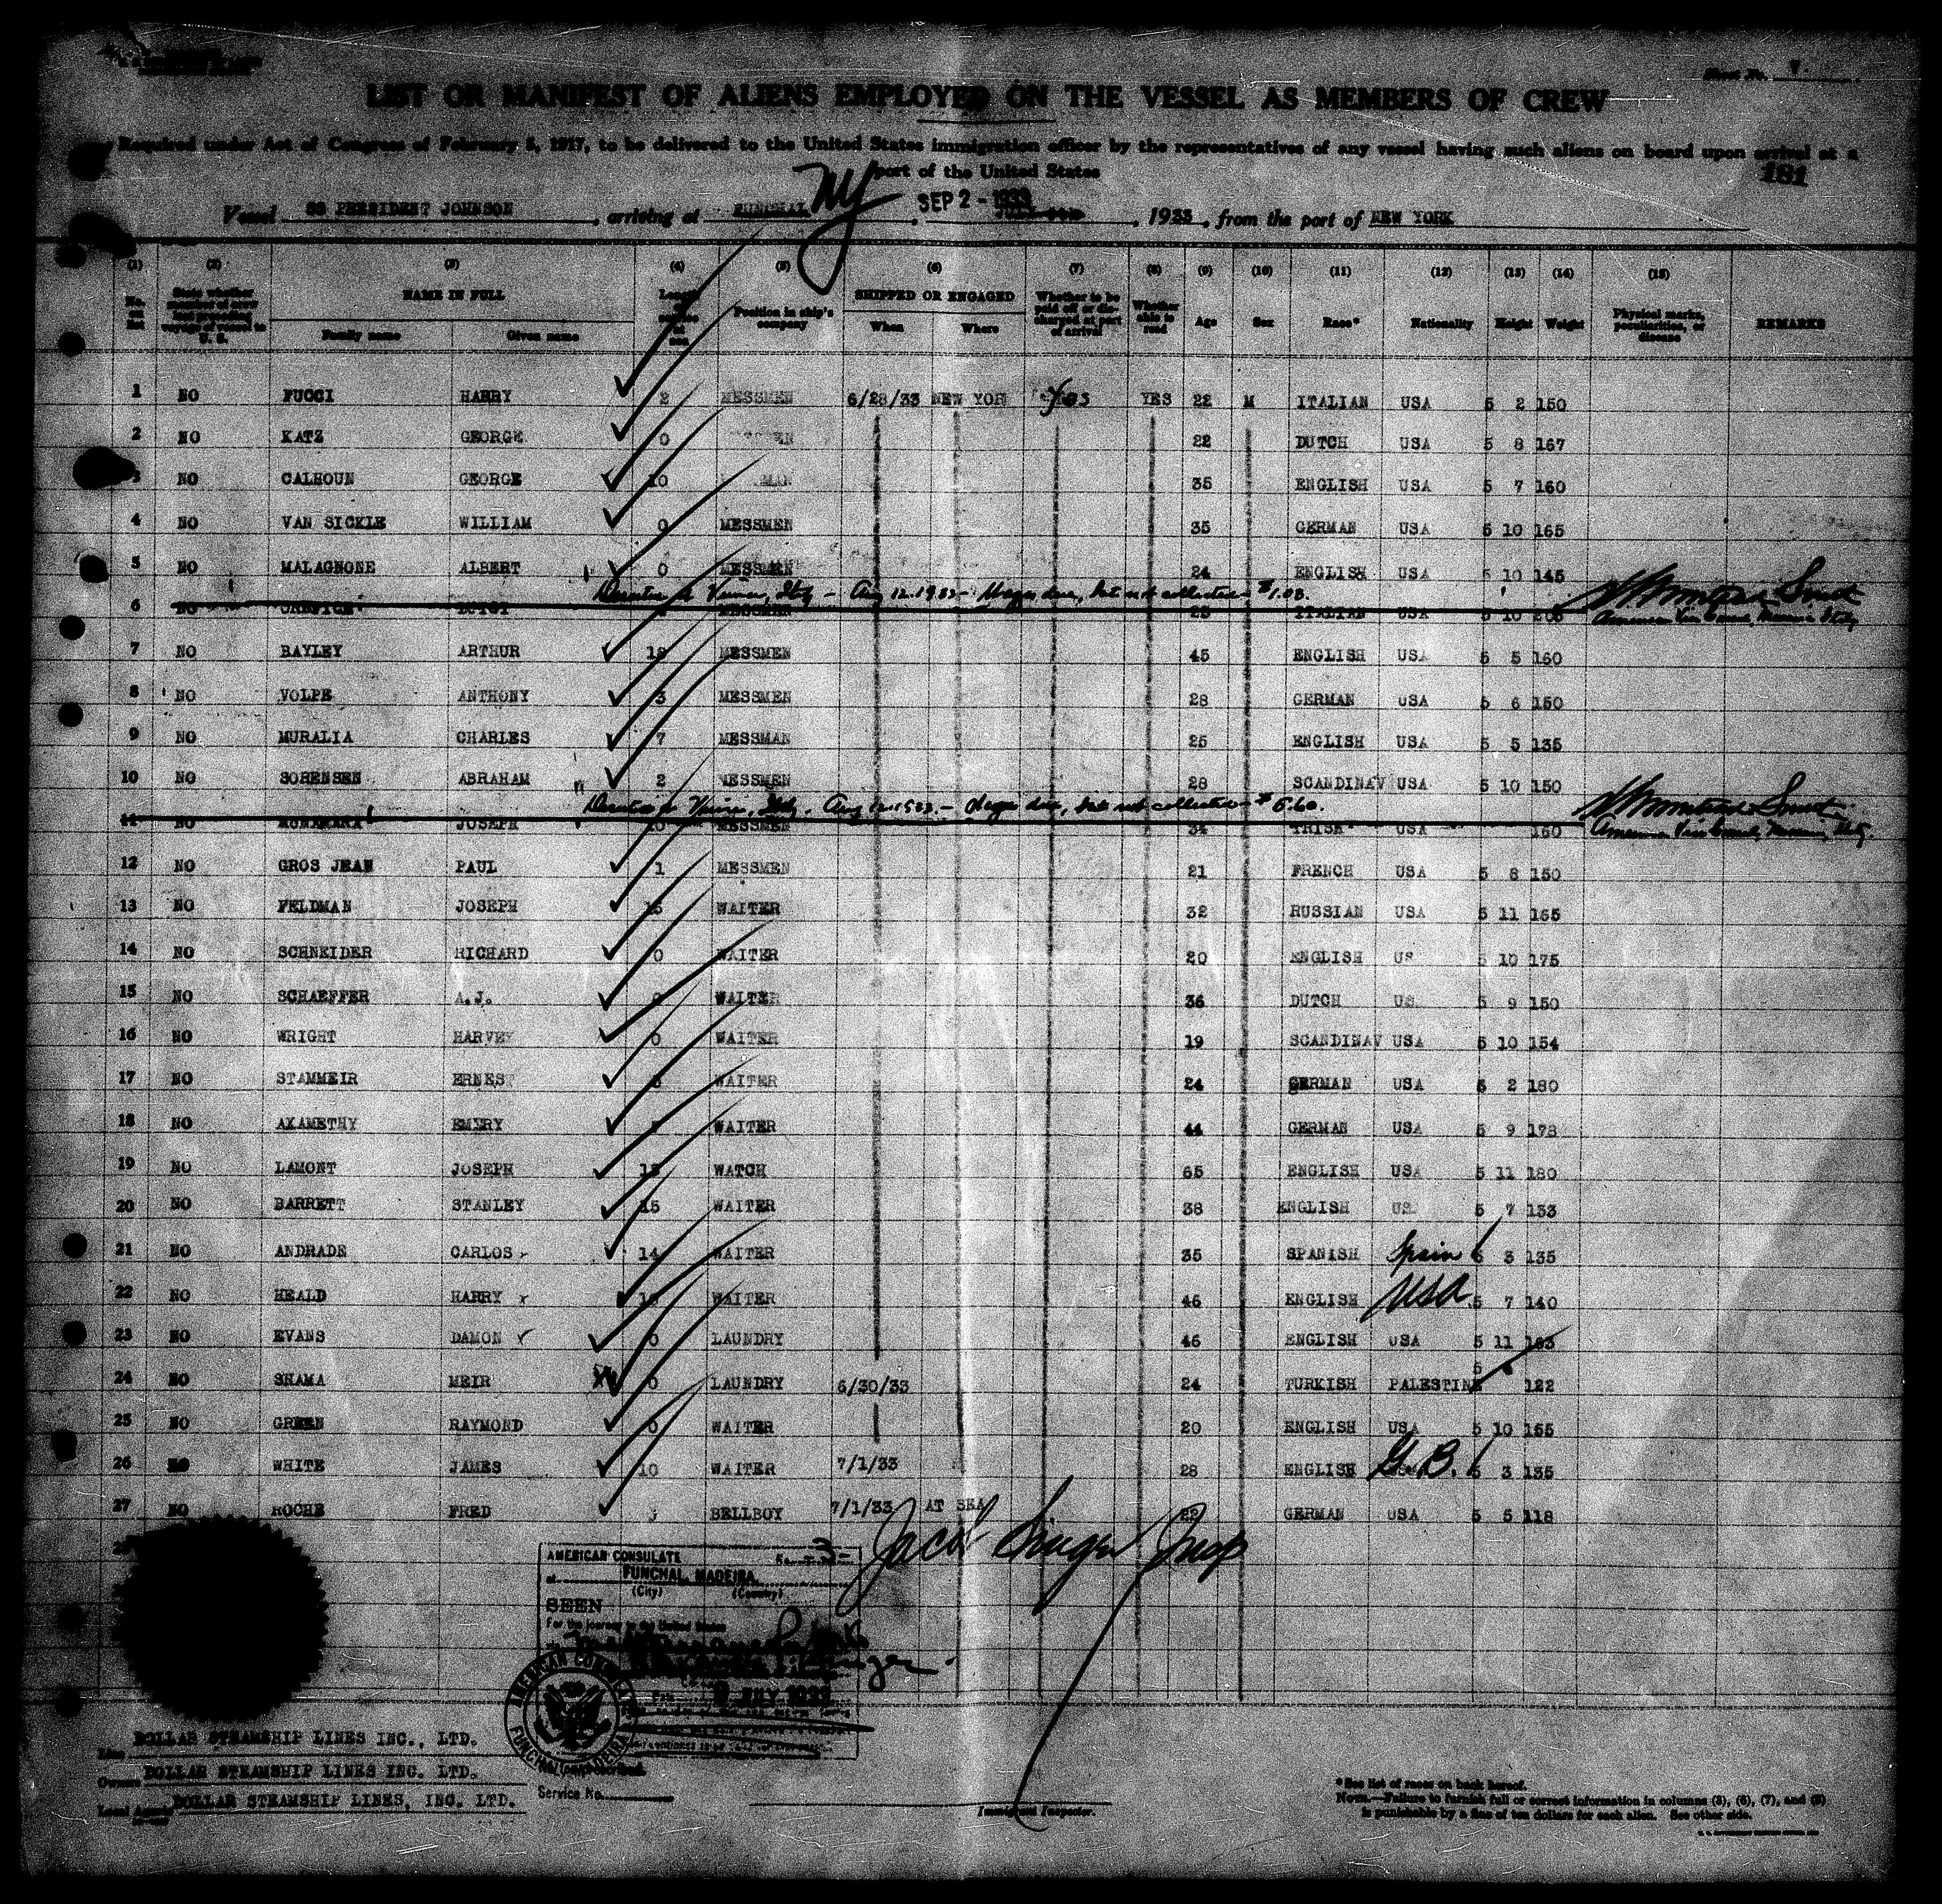 Sheet No.
LIST OR MANIFEST OF ALIENS EMPLOYED ON THE VESSEL AS MEMBERS OF CREW
Required under Act of Congress of February 5, 1917, to be delivered to the United States immigration officer by the representatives of any vessel having such aliens on board upon arrival at a
port of the United States
181
Vessel SS PRESIDENT JOHNSON, arriving at FUNCHAL NY, SEP 2 - 1933, 1933, from the port of NEW YORK
(1) (2) (3) (4) (5) (6) (7) (8) (9) (10) (11) (12) (13) (14) (15)
No. on list State whether member of crew last preceding voyage of vessel to U. S. NAME IN FULL Family name Given name Length of service at sea Position in ship's company SHIPPED OR ENGAGED When Where Whether to be paid off or discharged at port of arrival Whether able to read Age Sex Race* Nationality Height Weight Physical marks, peculiarities, or disease REMARKS
1 NO FUCCI HARRY 2 MESSMEN 6/28/33 NEW YOR YES 22 M ITALIAN USA 5 2 150
2 NO KATZ GEORGE 0 22 DUTCH USA 5 8 167
3 NO CALHOUN GEORGE 10 35 ENGLISH USA 5 7 160
4 NO VAN SICKLE WILLIAM 0 MESSMEN 35 GERMAN USA 5 10 165
5 NO MALAGNONE ALBERT 0 MESSMEN 24 ENGLISH USA 5 10 145
Aug 12-1933 - Wages due, but not collected - $1.03.
6 NO MESSMEN 25 ITALIAN USA 5 10
7 NO BAYLEY ARTHUR 18 MESSMEN 45 ENGLISH USA 5 5 160
8 NO VOLPE ANTHONY 3 MESSMEN 28 GERMAN USA 5 6 150
9 NO MURALIA CHARLES 7 MESSMAN 25 ENGLISH USA 5 5 135
10 NO SORENSEN ABRAHAM 2 MESSMEN 28 SCANDINAV USA 5 10 150
Aug 12-1933 - Wages due, but not collected - $5.60.
11 NO JOSEPH 10 MESSMEN 34 IRISH USA 160
12 NO GROS JEAN PAUL 1 MESSMEN 21 FRENCH USA 5 8 150
13 NO FELDMAN JOSEPH 15 WAITER 32 RUSSIAN USA 5 11 165
14 NO SCHNEIDER RICHARD 0 WAITER 20 ENGLISH US 5 10 175
15 NO SCHAEFFER A.J. WAITER 36 DUTCH US 5 9 150
16 NO WRIGHT HARVEY 0 WAITER 19 SCANDINAV USA 5 10 154
17 NO STAMMEIR ERNEST WAITER 24 GERMAN USA 5 2 180
18 NO AKAMETHY EMERY WAITER 44 GERMAN USA 5 9 178
19 NO LAMONT JOSEPH WATCH 65 ENGLISH USA 5 11 180
20 NO BARRETT STANLEY 15 WAITER 38 ENGLISH US 5 7 133
21 NO ANDRADE CARLOS 14 WAITER 35 SPANISH Spain 5 3 135
22 NO HEALD HARRY WAITER 46 ENGLISH USA 5 7 140
23 NO EVANS DAMON 0 LAUNDRY 46 ENGLISH USA 5 11 163
24 NO SHAMA MEIR 0 LAUNDRY 6/30/33 24 TURKISH PALESTINE 5 122
25 NO GREEN RAYMOND 0 WAITER 20 ENGLISH USA 5 10 155
26 NO WHITE JAMES 10 WAITER 7/1/33 28 ENGLISH G.B. 5 3 135
27 NO ROCHE FRED BELLBOY 7/1/33 AT SEA 22 GERMAN USA 5 5 118
Jacob Singer Insp
AMERICAN CONSULATE
at FUNCHAL, MADEIRA.
(City) (Country)
SEEN
For the journey to the United States
9 JULY 1933
AMERICAN CONSULATE FUNCHAL MADEIRA
Service No.
Line DOLLAR STEAMSHIP LINES INC., LTD.
Owners DOLLAR STEAMSHIP LINES INC. LTD.
Local Agents DOLLAR STEAMSHIP LINES, INC. LTD.
Immigrant Inspector.
*See list of races on back hereof.
NOTE.—Failure to furnish full or correct information in columns (3), (6), (7), and (8)
is punishable by a fine of ten dollars for each alien. See other side.